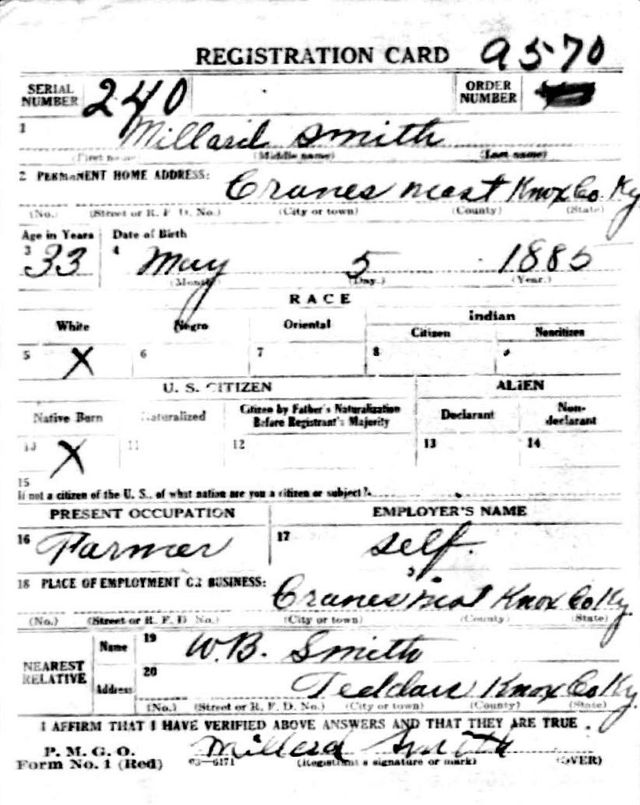 REGISTRATION CARD 9570
SERIAL NUMBER 240 ORDER NUMBER
1 Millard Smith
(First name) (Middle name) (Last name)
2 PERMANENT HOME ADDRESS: Cranes Knox Co. Ky
(No.) (Street or R. F. D. No.) (City or town) (County) (State)
Age in Years Date of Birth
3 33 4 May 5 1885
(Month.) (Day.) (Year.)
RACE
White Negro Oriental Indian
Citizen Noncitizen
5 X 6 7 8
U. S. CITIZEN ALIEN
Native Born Naturalized Citizen by Father's Naturalization Before Registrant's Majority Declarant Non-declarant
10 X 11 12 13 14
15
If not a citizen of the U. S., of what nation are you a citizen or subject?
PRESENT OCCUPATION EMPLOYER'S NAME
16 Farmer 17 self.
18 PLACE OF EMPLOYMENT OR BUSINESS:
Cranes Knox Co Ky.
(No.) (Street or R. F. D. No.) (City or town) (County) (State)
NEAREST RELATIVE Name 19 W.B. Smith
Address 20 Knox Co Ky.
(No.) (Street or R. F. D. No.) (City or town) (County) (State)
I AFFIRM THAT I HAVE VERIFIED ABOVE ANSWERS AND THAT THEY ARE TRUE
P. M. G. O. Millard Smith
Form No. 1 (Red) 03—6171 (Registrant's signature or mark) (OVER)